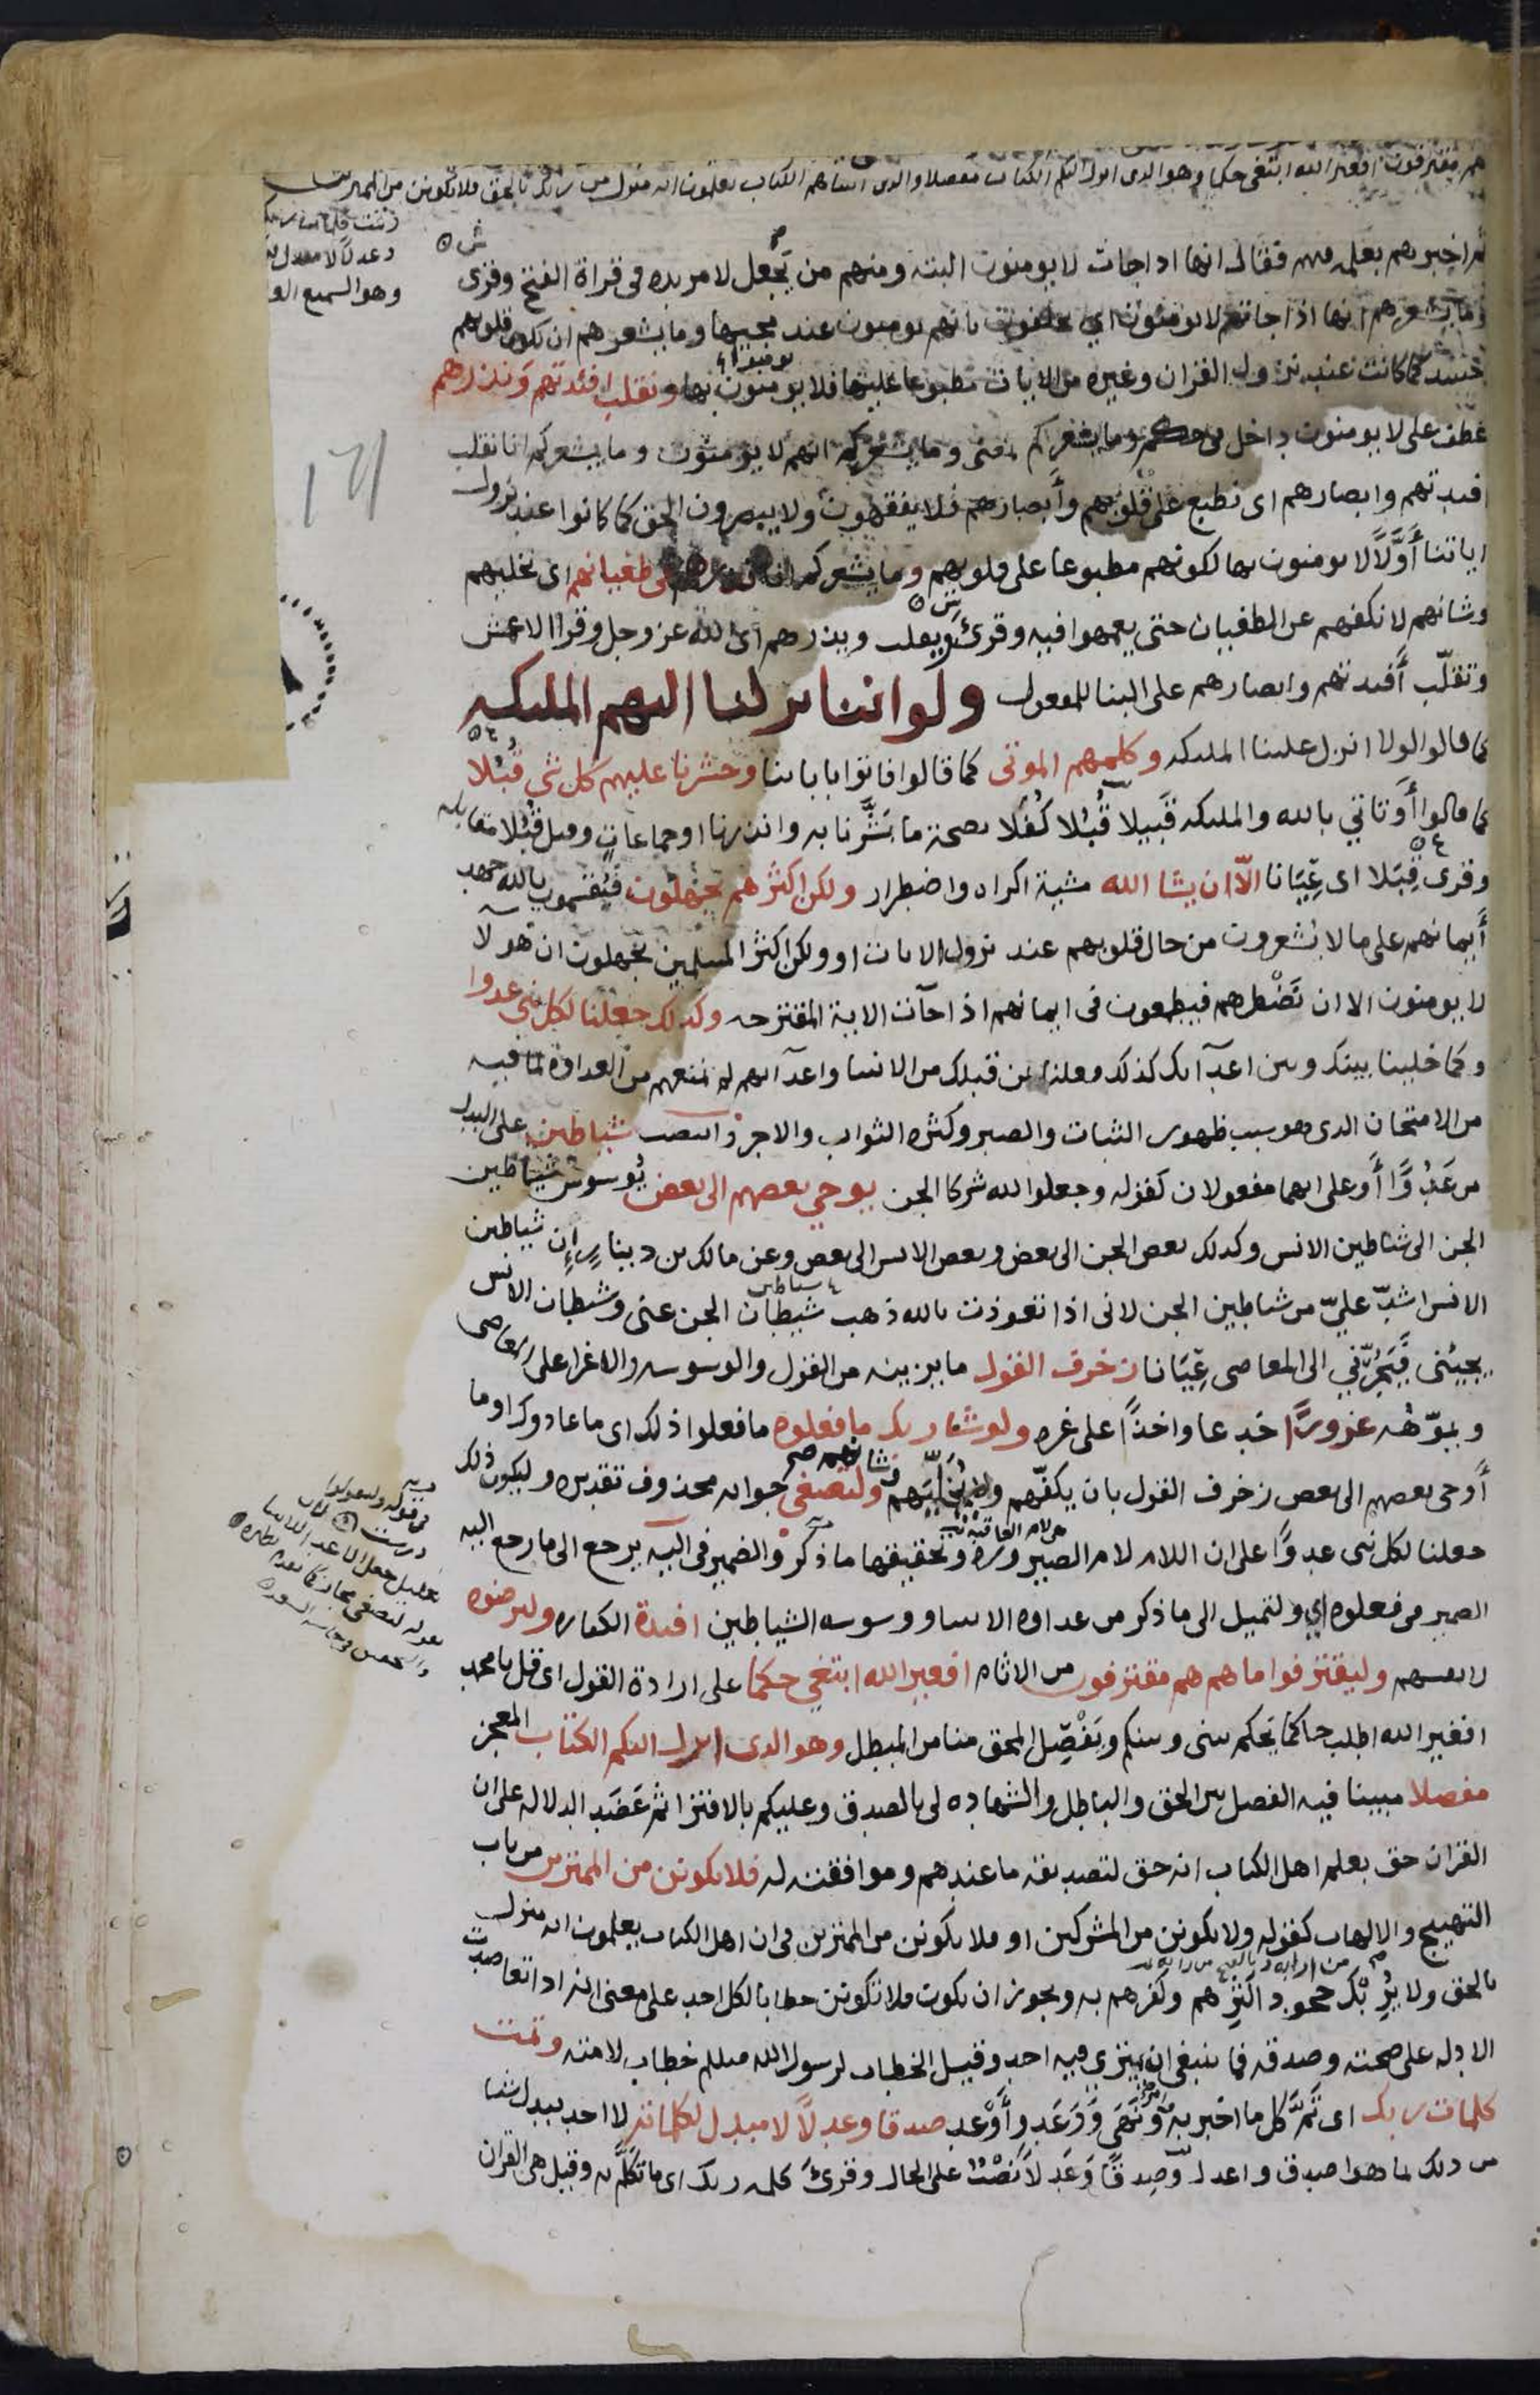 هم مقترفون افغير الله ابتغى حكما وهو الدى انزل اليكم الكتاب مفصلا والدين اتيناهم الكتاب يعلمون انه منزل من ربك بالحق فلا تكونن من الممترين
وعدلا لا مبدل
وهو السميع
ثم اخبرهم بعلمه فيهم فقال انها اذا جات لا يومنون البتة ومنهم من جعل لا مزيده فى قراة الفتح وقرى
وما يشعرهم انها اذا جاتهم لا يومنون اى يحلفون بانهم يومنون عند مجيها وما يشعرهم ان تكون قلوبهم
حينيذ كما كانت عند نزول القران وغيره من الايات مطبوعا عليها فلا يومنوا بها ونقلب افئدتهم ونذرهم
عطف على لا يومنون داخل فى حكم وما يشعركم بمعنى وما يشعركم انهم لا يومنون وما يشعركم انا نقلب
افيدتهم وابصارهم اى نطبع على قلوبهم وأبصارهم فلا يفقهون ولا يبصرون الحق كما كانوا عند نزول
اياتنا أوّلاً لا يومنون بها لكونهم مطبوعا على قلوبهم وما يشعركم انا نذرهم فى طغيانهم اى نخليهم
وشانهم لا نكفهم عن الطغيان حتى يعمهوا فيه وقرئ ويقلب ويذرهم اى الله عز وجل وقرا الاعمش
وتقلّب أفيدتهم وابصارهم على البنا للمفعول ولو اننا نزلنا اليهم المليكه
كما قالوا لولا انزل علينا المليكه وكلمهم الموتى كما قالوا فاتوا بابائنا وحشرنا عليهم كل شى قُبُلا
كما قالوا أو تاتي بالله والمليكه قَبيلا قُبُلا كُفَلا بصحة ما بَشَّرنا به وانذرنا او جماعات وقيل قُبُلا مقابله
وقرى قِبَلا اى عِيَانا الّا ان يشا الله مشية اكراه واضطرار ولكن اكثرهم يجهلون فيُقسمون بالله جهد
أيمانهم على ما لا يشعرون من حال قلوبهم عند نزول الايات او ولكن اكثر المسلمين يجهلون ان هولا
لا يومنون الا ان تَضْطرهم فيطمعون فى ايمانهم اذا جآت الاية المقترحه وكذلك جعلنا لكل نبى عدوا
وكما خلينا بينك وبين اعدآئك كذلك فعلنا بمن قبلك من الانبيا واعدآيهم لم نمنعهم من العداوة لما فيه
من الامتحان الذى هو سبب ظهور الثبات والصبر وكثره الثواب والاجر وانتصب شياطين على البدل
من عَدُوًّا أو على انهما مفعولان كقوله وجعلوا لله شركا الجن يوحي بعضهم الى بعض يُوسوس شياطين
الجن الى شياطين الانس وكذلك بعض الجن الى بعض وبعض الانس الى بعض وعن مالك بن دينار إن شياطين
الانس اشدّ عليّ من شياطين الجن لانى اذا تعوذت بالله ذهب شيطان الجن عنى وشيطان الانس
يجيئنى فيَجُرّني الى المعاصى عِيَانا زخرف القول ما يزينه من القول والوسوسه والاغرا على المعاصى
ويموّهُه غرورًا خدعا واخذًا على غره ولو شا ربك ما فعلوه ما فعلوا ذلك اى ما عادوك او ما
أوحى بعضهم الى بعض زخرف القول بان يكفّهم ولا يُخَلِيّهم وشانهم ولتصغى جوابه محذوف تقديره وليكون ذلك
جعلنا لكل نبى عدوًّا على ان اللام لام الصيروره وتحقيقها ما ذكر والضمير فى اليه يرجع الى ما رجع اليه
الضمير فى فعلوه اي ولتميل الى ما ذكر من عداوه الانبيا ووسوسه الشياطين افيدة الكفاره وليرضوه
لانفسهم وليقترفوا ما هم هم مقترفون من الاثام افغير الله ابتغي حكما على ارادة القول اى قل يا محمد
افغير الله اطلب حاكما يَحكم بينى وبينكم ويَفْصِل المحق منا من المبطل وهو الدى انزل اليكم الكتاب المعجز
مفصلا مبينا فيه الفصل بين الحق والباطل والشهاده لى بالصدق وعليكم بالافترا ثم عَضَد الدلاله على ان
القران حق بعلم اهل الكتاب انه حق لتصديقه ما عندهم وموافقته له فلا تكونن من الممترين من باب
التهييج والالهاب كقوله ولا تكونن من المشركين او فلا تكونن من الممترين فى ان اهل الكتاب يعلمون انه منزل
بالحق ولا يُرِيْبْك جحود اكثرهم وكفرهم به ويجوز ان يكون فلا تكونن خطابا لكل احد على معنى انه اذا تعاضدت
الادله على صحته وصدقه فما ينبغى ان يمترى فيه احد وقيل الخطاب لرسول الله صللم خطاب لامته وتمت
كلمات ربك اى تَمَّ كل ما اخبر به وامر ونَهَى وَوَعَد وأوْعد صدقا وعدلاً لا مبدل لكلماته لا احد يبدل شيا
من ذلك بما هو اصدق واعدل وصِدقًا وَعَدلاً نَصْبٌ على الحال وقرئ كلمه ربك اى ما تكَلَّم به وقيل هى القران